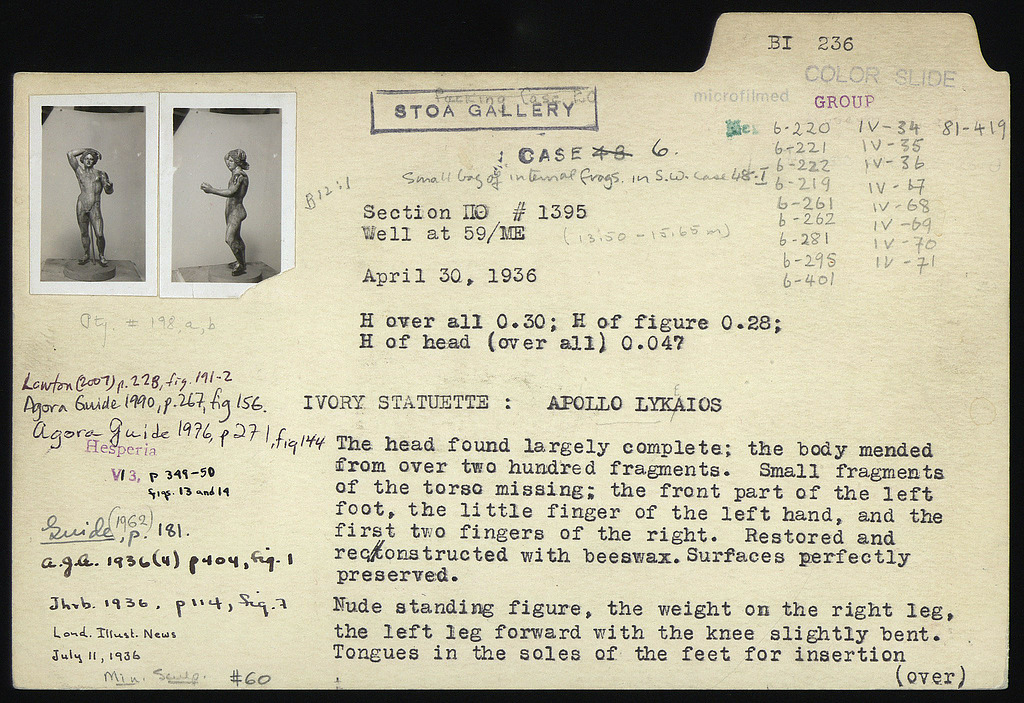 BI 236
COLOR SLIDE
microfilmed
GROUP
6-220 IV-34 81-419
6-221 IV-35
6-222 IV-36
6-219 IV-67
6-261 IV-68
6-262 IV-69
6-281 IV-70
6-295 IV-71
6-401
Packing Case
STOA GALLERY
CASE 48 6.
Small bag of internal frags. in S.W. Case 48-I
B12:1
Section ΠΟ # 1395
Well at 59/ΜΕ (13.50 - 15.65 m)
April 30, 1936
H over all 0.30; H of figure 0.28;
H of head (over all) 0.047
# 198, a, b
Lawton (2007) p. 228, fig. 191-2
Agora Guide 1990, p. 267, fig 156.
Agora Guide 1976, p 271, fig 144
Hesperia
VI 3, p 349-50
figs. 13 and 14
Guide (1962), p. 181.
a.J.a. 1936 (4) p 404, fig. 1
Jhrb. 1936. p 114, fig. 7
Lond. Illust. News
July 11, 1936
Min. Sculp. #60
IVORY STATUETTE : APOLLO LYKAIOS
The head found largely complete; the body mended
from over two hundred fragments. Small fragments
of the torso missing; the front part of the left
foot, the little finger of the left hand, and the
first two fingers of the right. Restored and
reconstructed with beeswax. Surfaces perfectly
preserved.
Nude standing figure, the weight on the right leg,
the left leg forward with the knee slightly bent.
Tongues in the soles of the feet for insertion
(over)